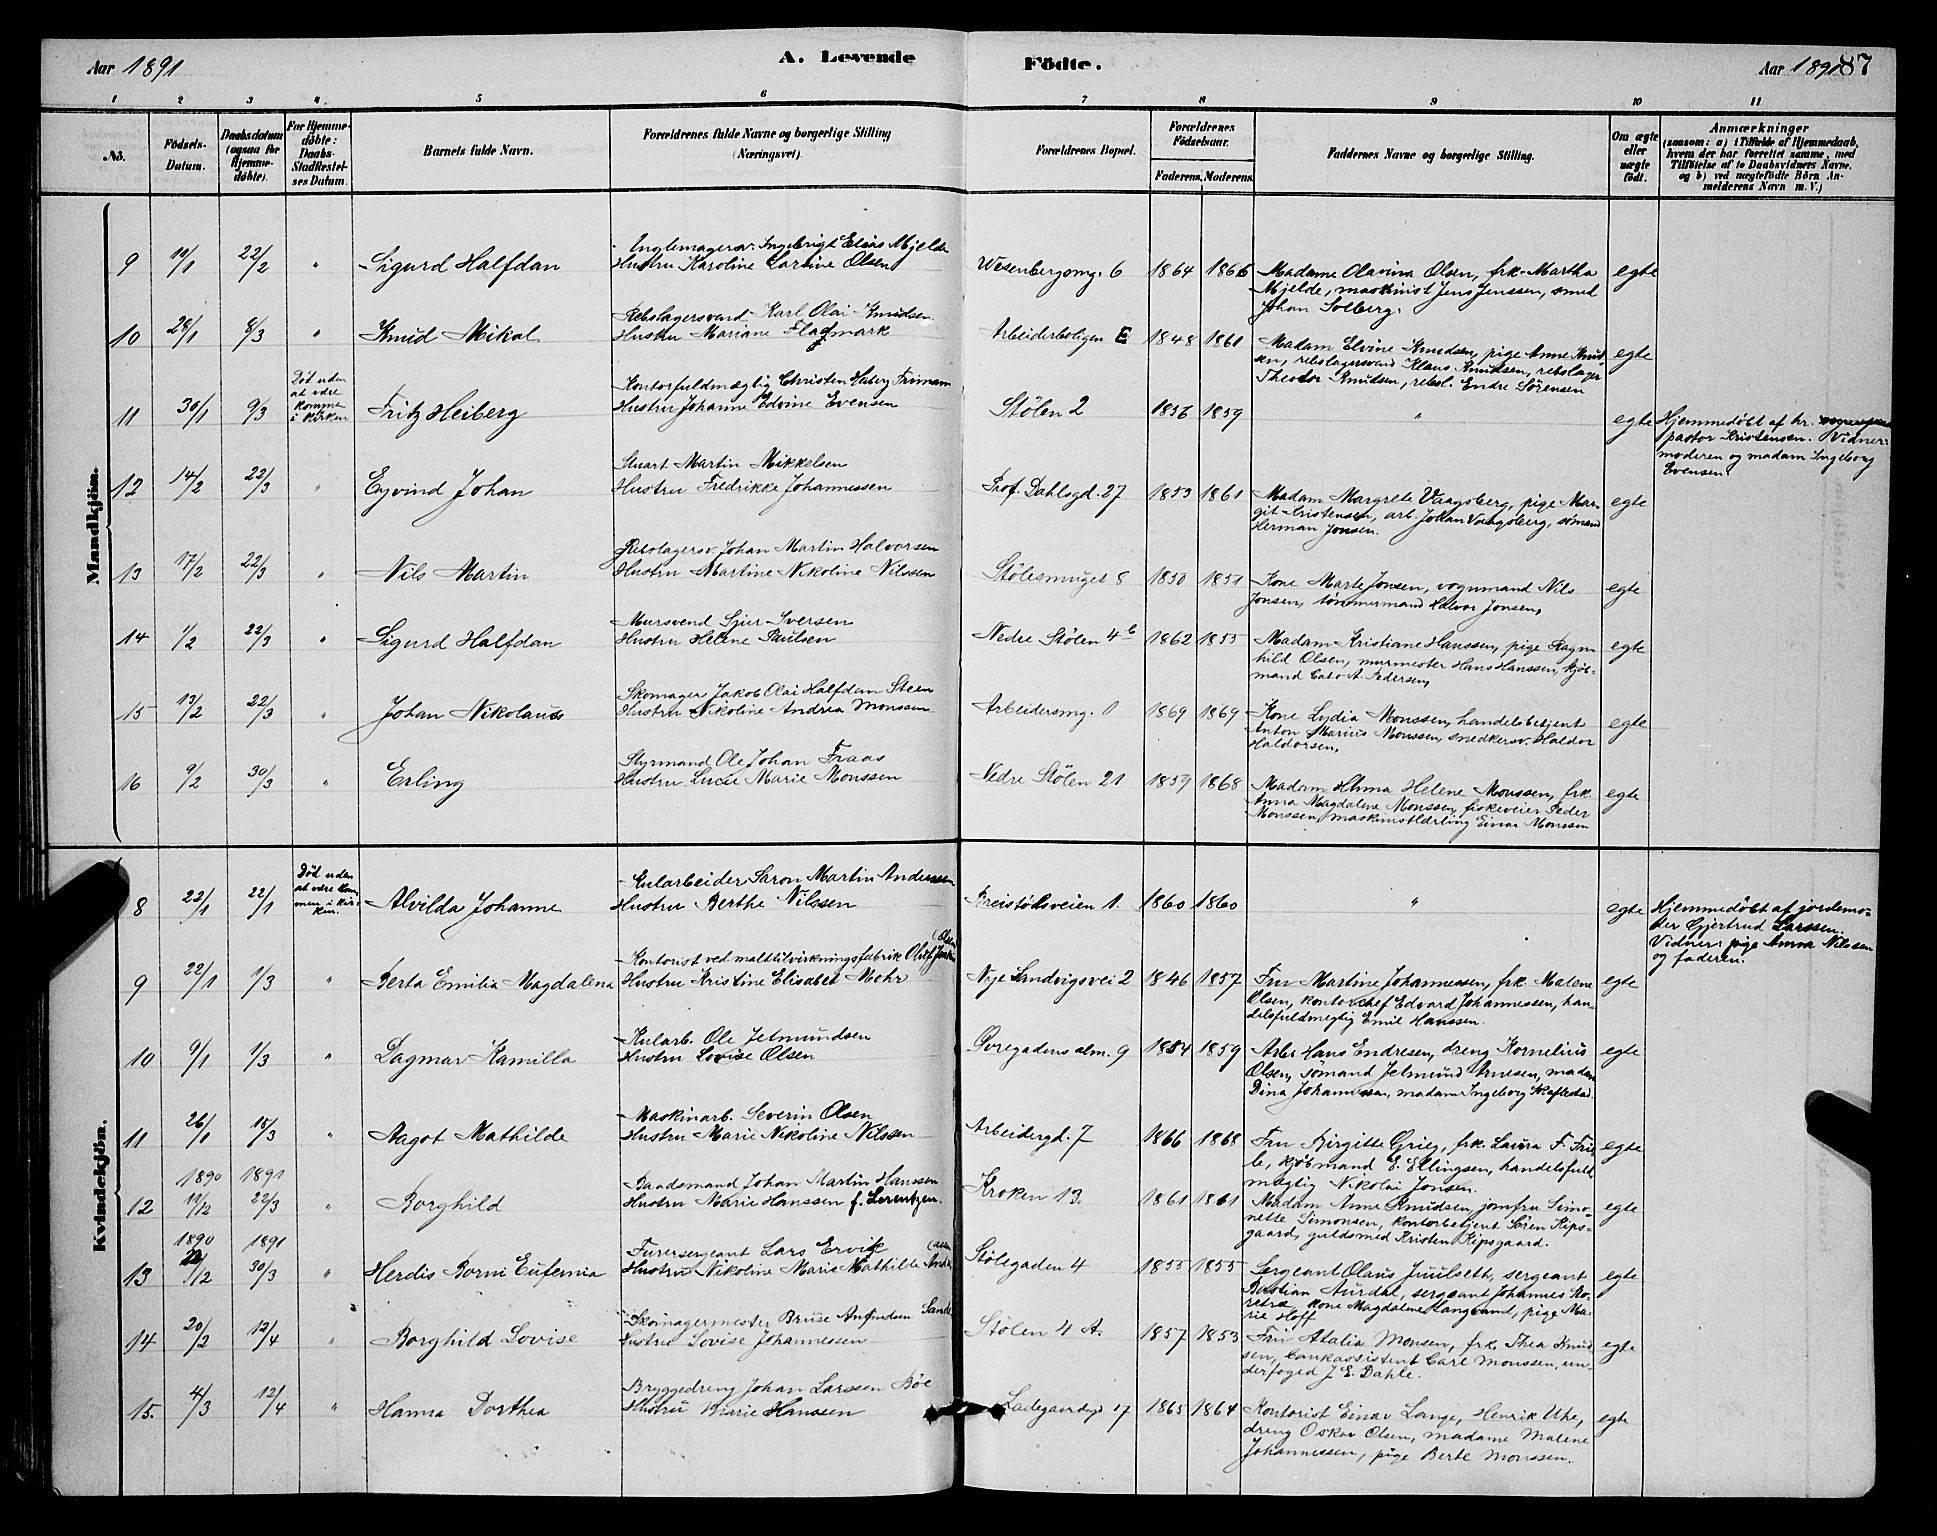 Aar 1891 A. Levende Födte. Aar 1891 87
1 2 3 4 5 6 7 8 9 10 11
No. Födsels-Datum. Daabsdatum (ogsaa for Hjemmedöbte). For Hjemmedöbte: Daabs-Stadfæstelses Datum. Barnets fulde Navn. Forældrenes fulde Navne og borgerlige Stilling (Næringsvei). Forældrenes Bopæl. Forældrenes Födselsaar. Faderens. Moderens. Faddernes Navne og borgerlige Stilling. Om ægte eller uægte født. Anmærkninger (saasom: a) i Tilfælde af Hjemmedaab, hvem der har forrettet samme, med Tilföielse af to Daabsvidners Navne, og b) ved uægtefödte Börn Anmelderens Navn m. V.)
Mandkjön.
9 10/1 22/2 " Sigurd Halfdan
Ingebrigt Elias Mjelde
Hustru Karoline Larsine Olsen
Wesenbergsmg. 6 1864 1866
Madame Olavina Olsen, frk. Martha
Mjelde, maskinist Jens Jenssen, smed
Johan Solberg.
egte
10 28/1 8/3 " Knud Mikal
Rebslagersvend Karl Olai Knudsen
Hustru Mariane Flagmark
Arbeiderboligen E 1848 1861
Madam Elvine Knudsen, pige Anne Knud-
sen, rebslagersvend Klaus Knudsen, rebslager
Theodor Knudsen, rebsl. Endre Sørensen
egte
11 30/1 9/3
Død uden
at være
kommen
i kirken
Fritz Heiberg
Kontorfuldmægtig Christen Heberg Friman
Hustru Johanne Edvine Evensen
Stølen 2 1856 1859 " egte
Hjemmedøbt af hr.
pastor Kristensen. Vidner:
moderen og madam Ingeborg
Evensen
12 14/2 22/3 " Eyvind Johan
Stuart Martin Mikkelsen
Hustru Fredrikke Johannessen
Prof. Dahlsgd. 27 1853 1861
Madam Margrete Vaagsberg, pige Mar-
git Kristensen, arb. Johan Vaagsberg, sømand
Herman Jonsen.
egte
13 17/2 22/3 " Nils Martin
Rebslagersv. Johan Martin Halvorsen
Hustru Martine Nikoline Nilssen
Stølesmuget 8 1850 1851
Kone Marte Jonsen, vognmand Nils
Jonsen, tømmermand Halvor Jonsen,
egte
14 1/2 22/3 " Sigurd Halfdan
Mursvend Sjur Iversen
Hustru Helene Paulsen
Nedre Stølen 4b 1862 1855
Madam Kristiane Hanssen, pige Ragn-
hild Olsen, murmester Hans Hanssen, kjøb-
mand Carl A. Pedersen,
egte
15 13/2 22/3 " Johan Nikolaus
Skomager Jakob Olai Halfdan Steen
Hustru Nikoline Andrea Monssen
Arbeidersmg. 1 1869 1869
Kone Lydia Monssen, handelsbetjent
Anton Marius Monssen, snedkersv. Haldor
Haldorsen,
egte
16 9/2 30/3 " Erling
Styrmand Ole Johan Fraas
Hustru Lucie Marie Monssen
Nedre Stølen 21 1859 1868
Madam Hanna Helene Monssen, frk.
Anna Magdalene Monssen, fiskeveier Peder
Monssen, maskinistlærling Einar Monssen
egte
Kvindekjön.
8 22/1 22/1
Død uden
at være kom-
men i kir-
ken.
Alvilda Johanne
Kularbeider Saron Martin Anderssen
Hustru Berthe Nilssen
Breistølsveien 1. 1860 1860 " egte
Hjemmedøbt af jordemo-
der Gjertrud Larssen.
Vidner: pige Anna Nilssen
og faderen.
9 22/1 1/3 " Berta Emilia Magdalena
(Olsen
Kontorist ved malttilvirkningsfabrik Oluf
Hustru Kristine Elisabet Mohr
Nye Sandvigsvei 2 1846 1857
Fru Martine Johannessen, frk. Malene
Olsen, kontorchef Edvard Johannessen, han-
delsfuldmegtig Emil Hanssen.
egte
10 9/1 1/3 " Dagmar Kamilla
Kularb. Ole Jelmundsen
Hustru Lovise Olsen
Øvregadens alm. 9 1854 1859
Arb. Hans Endresen, dreng Kornelius
Olsen, sømand Jelmund Arnesen, madam
Dina Johannessen, madam Ingeborg Skaftestad.
egte
11 26/1 15/3 " Aagot Mathilde
Maskinarb. Severin Olsen
Hustru Marie Nikoline Nilssen
Arbeidergd. 7 1866 1868
Fru Birgitte Grieg, frk. Laura F. Frie-
le, kjøbmand E. Ellingsen, handelsfuld-
mægtig Nikolai Jonsen.
egte
1890 1891
12 11/12 22/3 " Borghild
Baadsmand Johan Martin Hanssen
Hustru Marie Hanssen f. Lorentzen.
Kroken 13. 1861 1861
Madam Anne Knudsen, jomfru Simo-
nette Simonsen, kontorbetjent Søren Kips-
gaard, guldsmed Kristen Kipsgaard.
egte
1890 1891
13 30/3 " Herdis Borni Eufemia
Furersergeant Lars Ervik
Hustru Nikoline Marie Mathilde
Stølegaden 4 1855 1855
Sergeant Olaus Juulseth, sergeant
Bastian Aurdal, sergeant Johannes
kone Magdalene Langeland, pige Ma-
rie Hoff
egte
14 20/2 12/4 " Borghild Lovise
Skomagermester Bruse Amundsen Sande
Hustru Lovise Johannessen
Stølen 4 A. 1857 1853
Fru Atalia Monsen, frk. Thea Knud-
sen, bankassistent Carl Monssen, un-
derfoged J. E. Dahle.
egte
15. 4/3 12/4 " Hanna Dorthea
Bryggedreng Johan Larssen Bøe
Hustru Marie Hansen
Ladegaardsgd 17 1865 1864
Kontorist Einar Lange, Henrik Uhe,
dreng Oskar Olsen, madame Malene
Johannessen, pige Berte Monssen.
egte